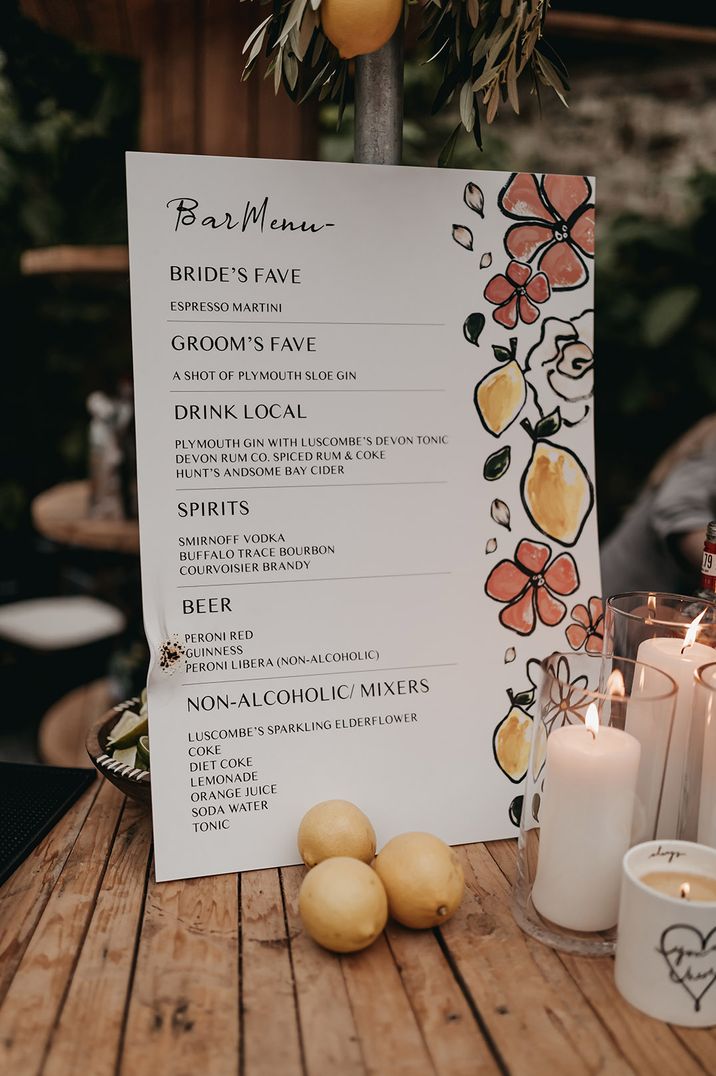 Bar Menu-
BRIDE'S FAVE
ESPRESSO MARTINI
GROOM'S FAVE
A SHOT OF PLYMOUTH SLOE GIN
DRINK LOCAL
PLYMOUTH GIN WITH LUSCOMBE'S DEVON TONIC
DEVON RUM CO. SPICED RUM & COKE
HUNT'S ANDSOME BAY CIDER
SPIRITS
SMIRNOFF VODKA
BUFFALO TRACE BOURBON
COURVOISIER BRANDY
BEER
PERONI RED
GUINNESS
PERONI LIBERA (NON-ALCOHOLIC)
NON-ALCOHOLIC/ MIXERS
LUSCOMBE'S SPARKLING ELDERFLOWER
COKE
DIET COKE
LEMONADE
ORANGE JUICE
SODA WATER
TONIC
79
always
you